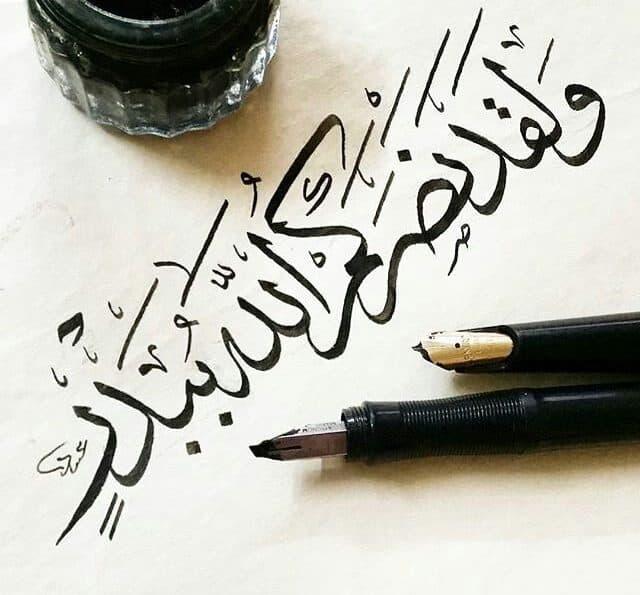 وَلَقَدْ نَصَرَكُمُ اللَّهُ بِبَدْرٍ